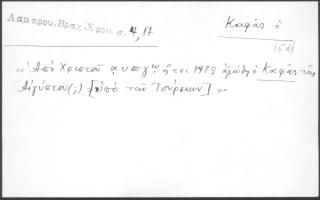 Λαμπρου, Βραχ. Χρον. σ. 4, 17
Καφᾶς ὁ
« Ἀπὸ Χριστοῦ ͵αυπγῳ, ἤτοι 1483 ἑλώθη ὁ Καφᾶς τῆς
Αἰγύπτου(;) [ὑπὸ τῶν Τούρκων] »